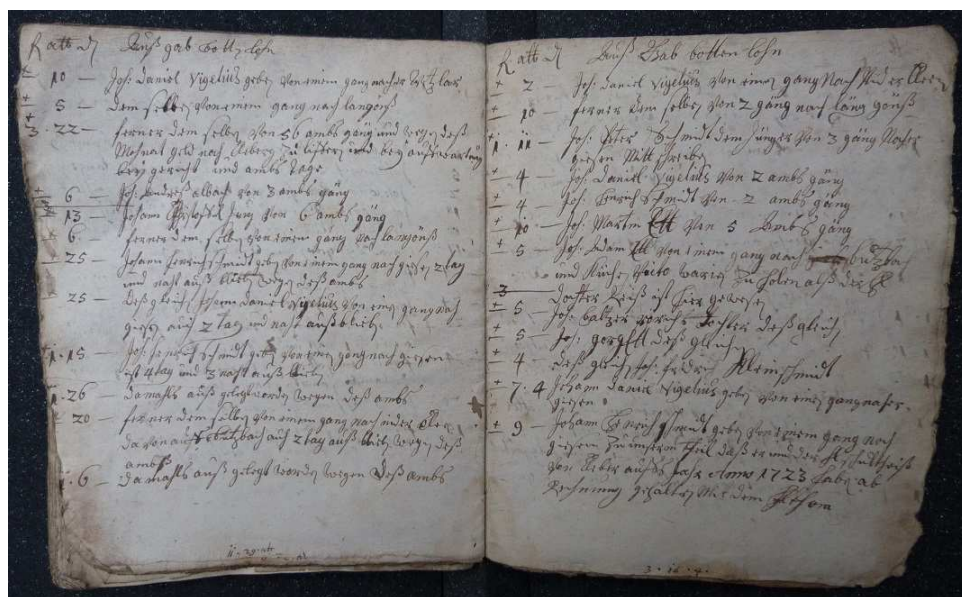 Auß gab botten lohn
10 — Joh: Daniel Vigelius geben von einem gang nacher Wetzlar
5 — dem selben von einem gang nach langönß
3 · 22 — ferner dem selben von 56 ambs gäng und wegen deß
Mohnat geld nach Cleberg zu liefern und bey aufwartung
bey gericht und ambs tage
6 — Joh: Andreß albach von 3 ambs gäng
13 — Johann Jung von 6 ambs gäng
6 — ferner dem selben von einem gang nach langönß
25 — Johann Henrich Schmidt geben von einem gang nach giesen 2 tag
und nacht auß blieben wegen deß ambs
25 — deß gleichen Johann Daniel Vigelius von einem gang nach
giesen auch 2 tag und nacht auß blieben
1 · 15 — Joh: Henrich Schmidt geben von einem gang nach giesen
4 tag und 3 nacht auß blieben
1 · 26 — damahls auß gelegt worden wegen deß ambs
20 — ferner dem selben von einem gang nach nider Cleen
da von auf butzbach auch 2 tag auß blieben wegen deß
ambs
1 · 6 — damahls auß gelegt worden wegen deß ambs
Auß Gab botten lohn
2 — Joh: Daniel Vigelius von einem gang nach Nider Cleen
10 — ferner dem selben von 2 gäng nach lang gönß
1 · 11 — Joh: Peter Schmidt dem Jünger von 3 gäng nacher
giesen mitt schreiben
4 — Joh: Daniel Vigelius von 2 ambs gäng
4 — Joh: Henrich Schmidt von 2 ambs gäng
10 — Joh: Martin Ett von 5 Ambs gäng
5 — Joh: Adam Ett von einem gang nach butzbach
und zu holen alß der
Docter ist hier gewesen
5 — Joh: baltzer Tochter deß gleichen
5 — Joh: deß gleichen
4 — deß gleichen Joh: Fridrich Kleinschmidt
7 · 4 Johann Daniel Vigelius geben von einem gang nacher
giesen
9 — Johann Henrich Schmidt geben von einem gang nach
giesen zu unserem theil daß er und der H: Schultheiß
von Cleberg auf das Jahr Anno 1723 habe ab
Rechnung gehalten mit dem
3 · 12 · 4 ·